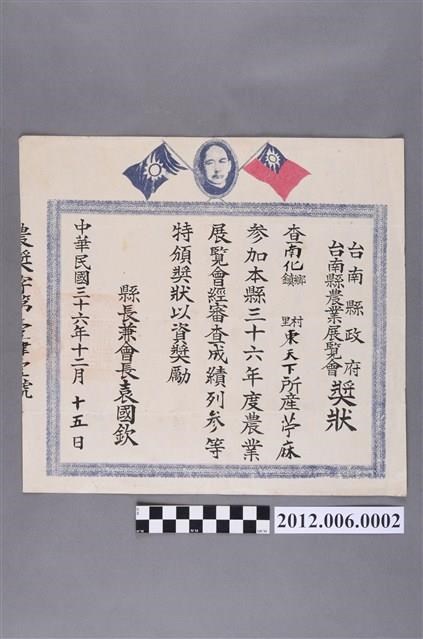 台南縣政府
台南縣農業展覽會
獎狀
查南化鄉鎮 村里 東天下所產苧麻
參加本縣三十六年度農業
展覽會經審查成績列參等
特頒獎狀以資獎勵
縣長兼會長袁國欽
中華民國三十六年十二月十五日
農獎字第
號
2012.006.0002